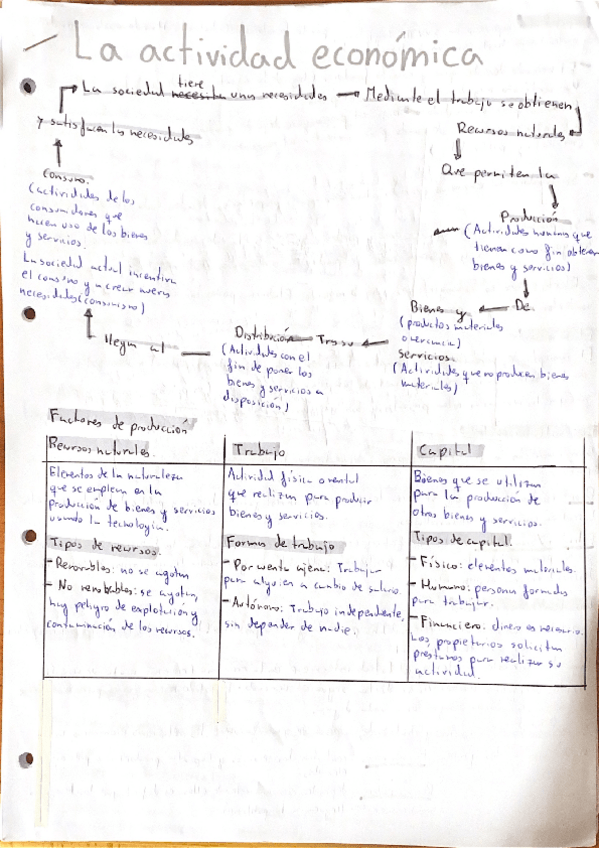 La actividad económica
La sociedad necesita tiene unas necesidades → Mediante el trabajo se obtienen
Recursos naturales
Que permiten la
Producción
(Actividades humanas que
tienen como fin obtener
bienes y servicios)
De
Bienes y
(productos materiales
o
servicios.
(Actividades que no producen bienes
materiales)
Tras su
Distribución
(Actividades con el
fin de poner los
bienes y servicios a
disposición)
llegan al
Consumo.
(actividades de los
consumidores que
hacen uso de los bienes
y servicios.
La sociedad actual incentiva
el consumo y a crear nuevas
necesidades (consumismo)
y satisfacen las necesidades
Factores de producción
Recursos naturales.
Elementos de la naturaleza
que se emplean en la
producción de bienes y servicios
usando la tecnología.
Tipos de recursos.
- Renovables: no se agotan
- No renobables: se agotan,
hay peligro de explotación y
contaminación de los recursos.
Trabajo
Actividad física o mental
que realizan para producir
bienes y servicios.
Formas de trabajo
- Por cuenta ajena: Trabajar
para alguien a cambio de salario.
- Autónomo: Trabajo independiente,
sin depender de nadie.
Capital
Bienes que se utilizan
para la producción de
otros bienes y servicios.
Tipos de capital.
- Físico: elementos materiales.
- Humano: persona formada
para trabajar.
- Financiero: dinero es necesario.
Los propietarios solicitan
préstamos para realizar su
actividad.